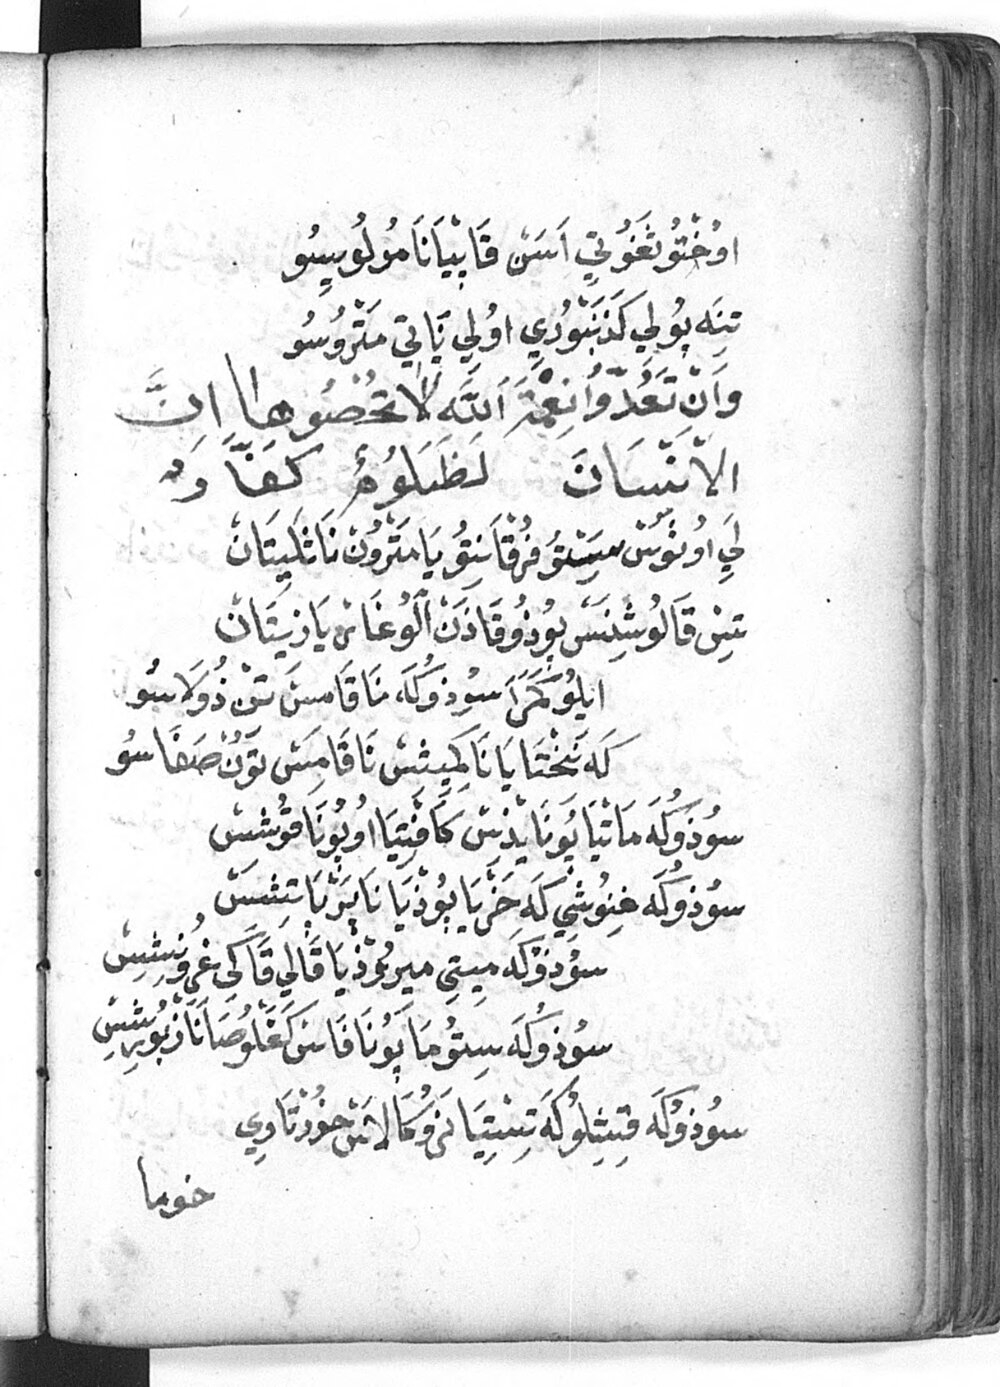 اوُخْتُو تَغَوُتِي اَسَنْ قَابْيَانَا مُولُوسِسُو
تِنَه پُولِي كَذَنَبْتوُرِي اوُلِي يَاتِي مَتْرُوسُو
وَاَنْ تَعُدّوُا نِعْمَةَ اَللَّه لَا تُحْصُوهَا اِنَّ
الْاِنْسَانَ لَظَلُومٌ كَفَّارٌ
لِي اوُنوُسْ سِسْتوُ فُرْقَانِتوُ يَا مَتْرُونْ نَاثْلِيتَانْ
تِنْ قَالُوشِنَسْ پوُذوُقَاذَنْ اَلوُغَاسْ يَازِيتَانْ
ايلوُكَمَرَا سوُذوُكَه نَا قَامِسْ تِنْ ذُولَاسُو
كَه نَخْتَا يَا نَا كِمِيثِسْ نَا قَامِسْ تَوَنْ صَفَاسُو
سوُذوُكَه مَاتْيَا پوُنَا يذِسْ كَافْتِيَا اوُپوُنَا قوُشِسْ
سوُذوُكَه غِنوُشِي كَه خَرْيَا پوُذْيَا نَا پَرْپَاتِشِسْ
سوُذوُكَه مِيتِي ميرِعوُذْيَا قَالِي قَاكِي غرُونِشِسْ
سوُذوُكَه سِتوُمَا پوُنَا فَاسْ كَغْلوُصَا نَا زبوُرِشِسْ
سوُذوُكَه قِتِثِلوُكَه تِسْتِيَا نَرْوُكَالَاسْ خوُرْتَارِي
خوما